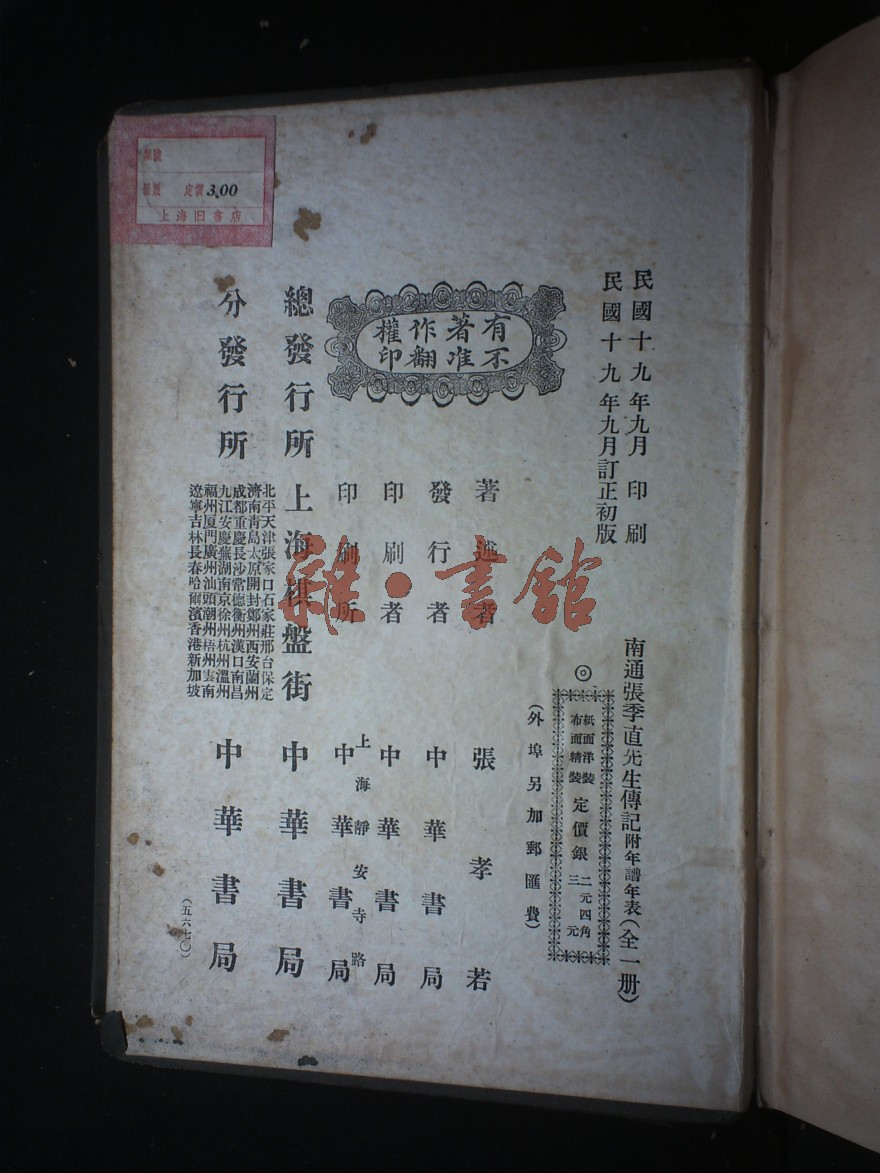 民國十九年九月印刷
民國十九年九月訂正初版
南通張季直先生傳記附年譜年表(全一册)
◎
紙面洋裝
布面精裝
定價銀
二元四角
三元
(外埠另加郵匯費)
有不著唯作翻權印
著述者 張孝若
發行者 中華書局
印刷者 中華書局
印刷所 上海靜安寺路 中華書局
總發行所 上海棋盤街 中華書局
分發行所
北平天津張家口石家莊邢台保定
濟南青島太原開封鄭州西安蘭州
成都重慶長沙常德衡州漢口南昌
九江安慶蕪湖南京徐州杭州溫州
福州厦門廣州汕頭潮州梧州雲南
遼寧吉林長春哈爾濱香港新加坡
中華書局
(五六七〇)
定價 3.00
上海旧書店
雜·書舘